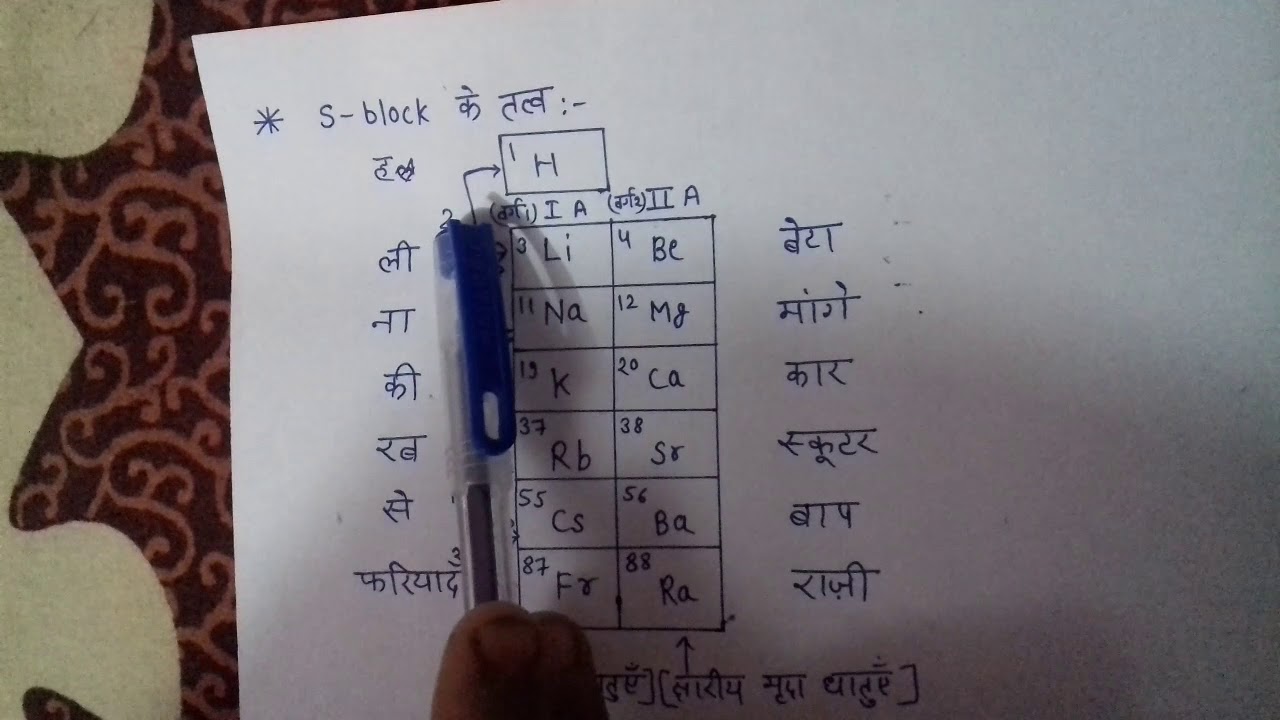 * S-block के तत्व :-
1 H
(वर्ग1) I A (वर्ग2) II A
ली 3 Li 4 Be बेटा
ना 11 Na 12 Mg मांगे
की 19 K 20 Ca कार
रब 37 Rb 38 Sr स्कूटर
से 55 Cs 56 Ba बाप
फरियाद 87 Fr 88 Ra राज़ी
[क्षारीय मृदा धातुएँ]